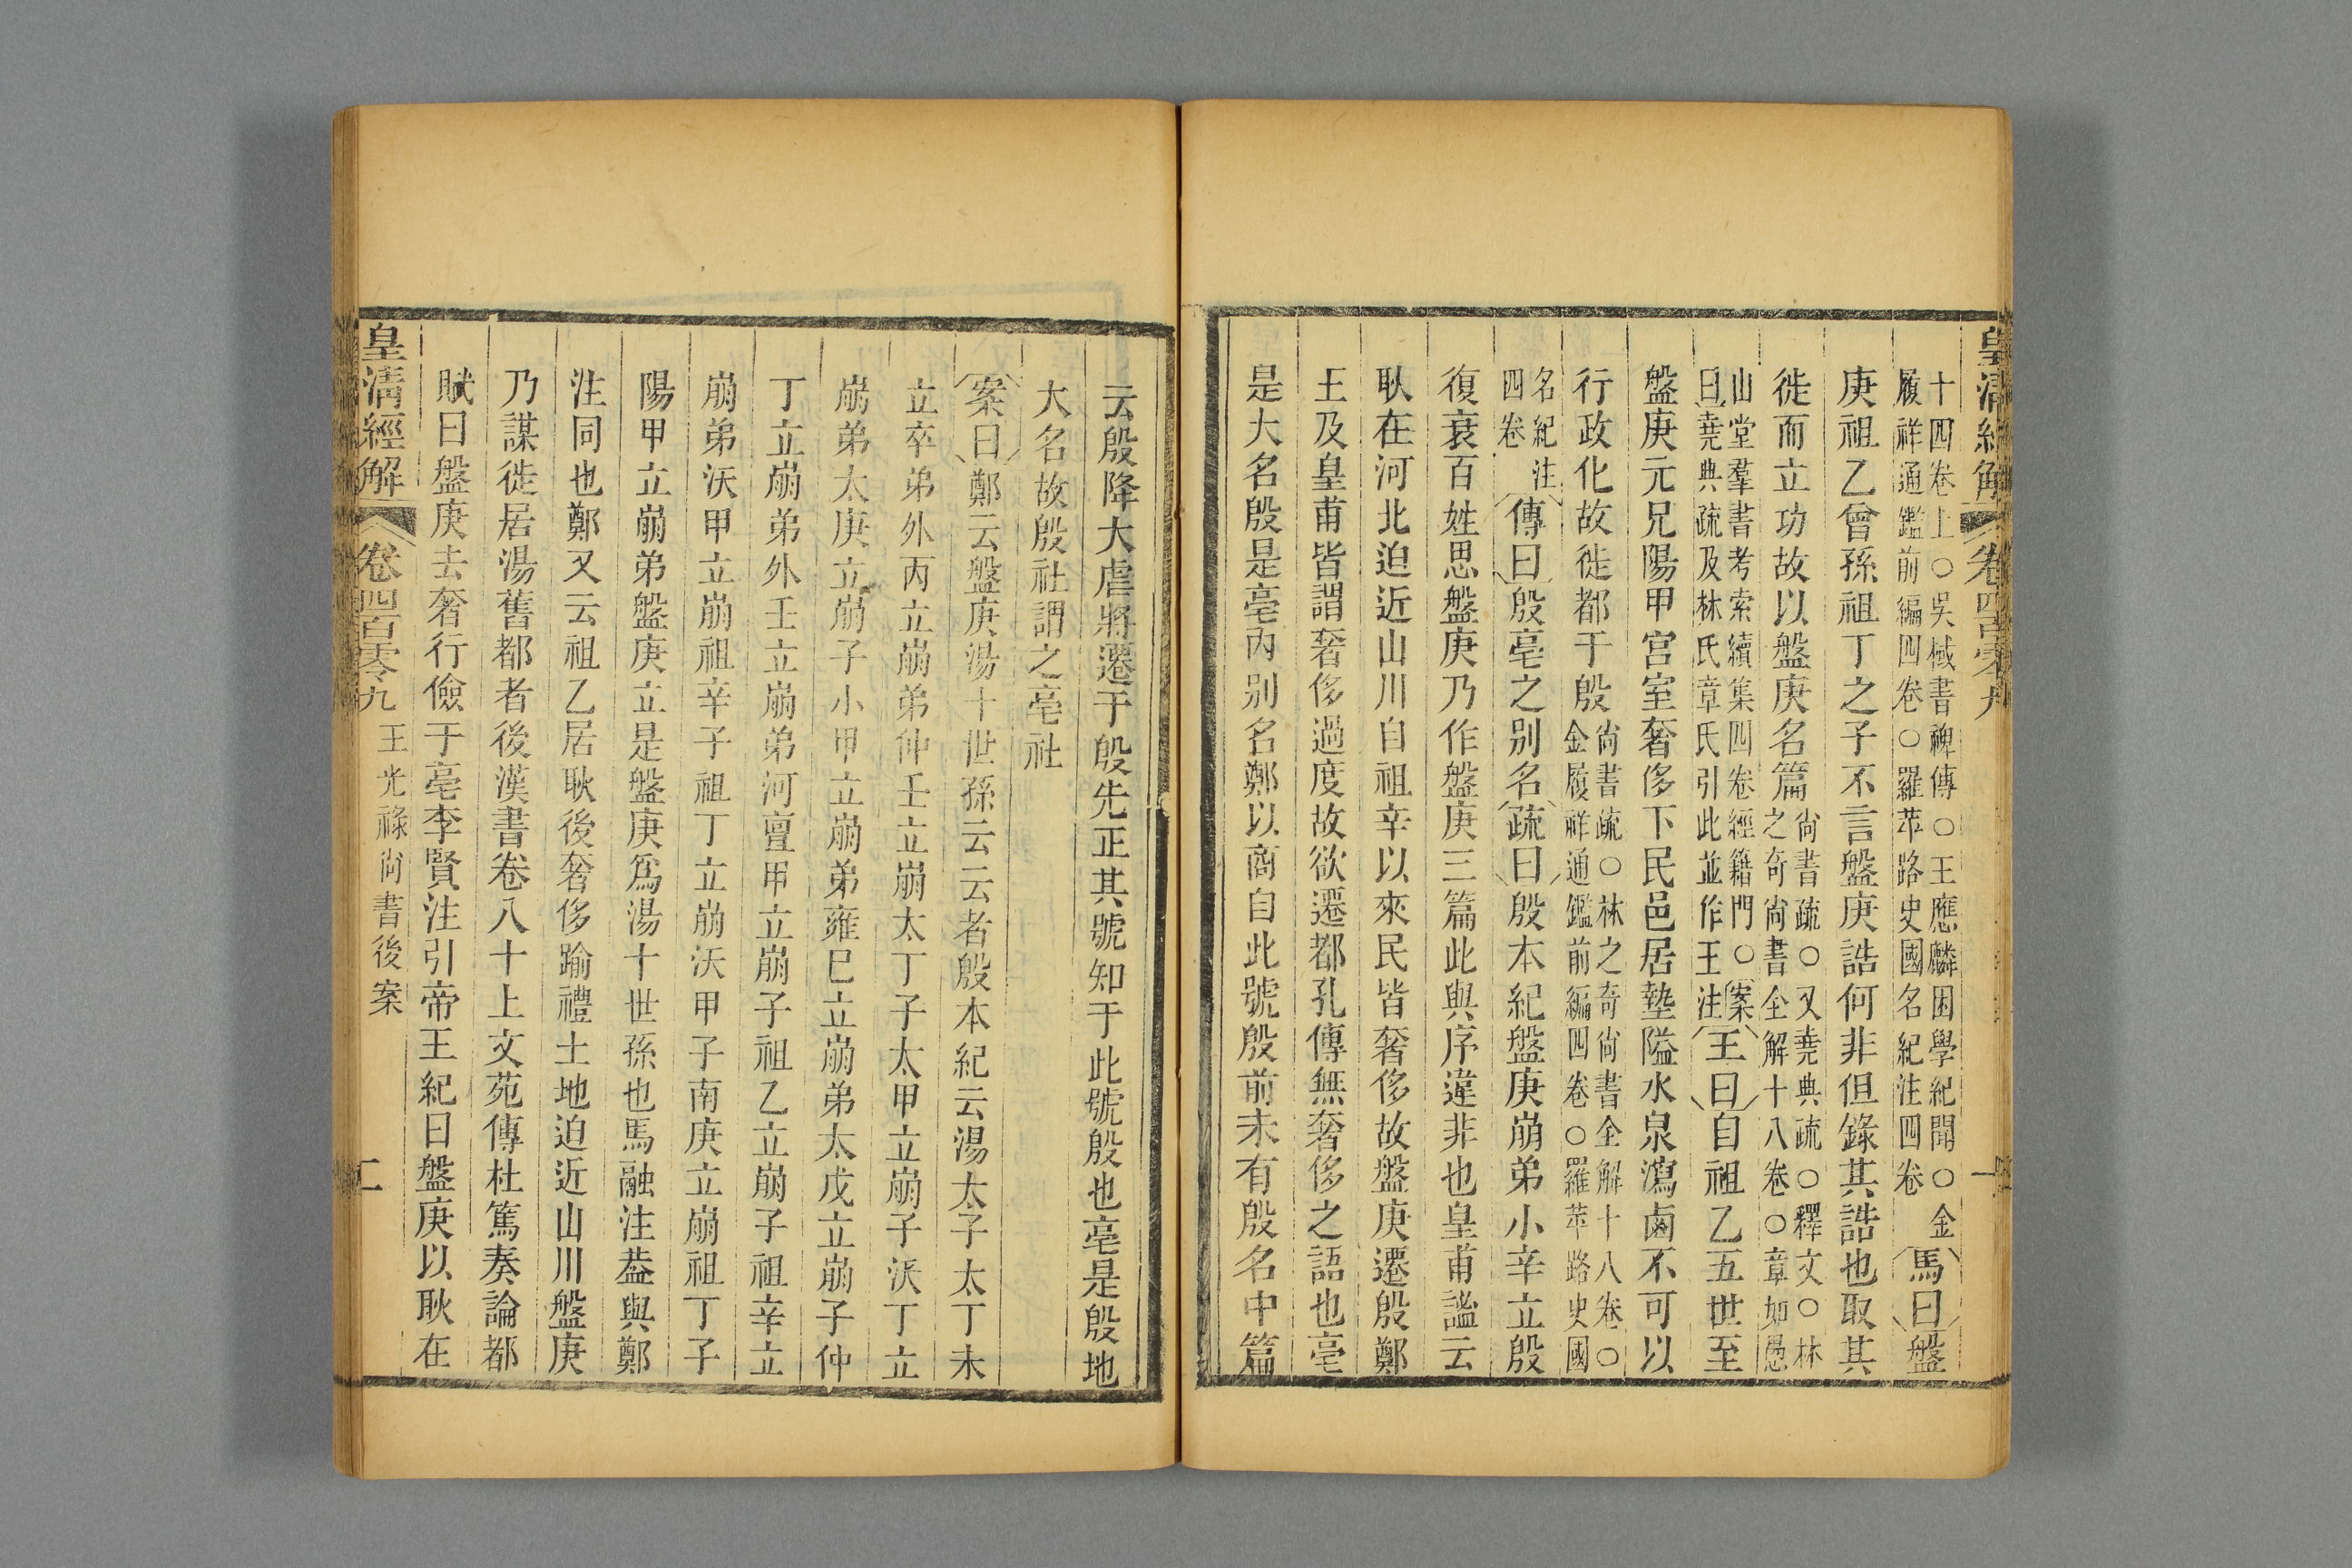 皇清經解 卷四百零九 一
十四卷上○吳棫書裨傳○王應麟困學紀聞○金
履祥通鑑前編四卷○羅苹路史國名紀注四卷
馬曰盤
庚祖乙曾孫祖丁之子不言盤庚誥何非但錄其誥也取其
徙而立功故以盤庚名篇
尙書疏○又堯典疏○釋文○林
之奇尙書全解十八卷○章如愚
山堂羣書考索續集四卷經籍門○案
曰堯典疏及林氏章氏引此並作王注
王曰自祖乙五世至
盤庚元兄陽甲宮室奢侈下民邑居墊隘水泉瀉鹵不可以
行政化故徙都于殷
尙書疏○林之奇尙書全解十八卷○
金履祥通鑑前編四卷○羅苹路史國
名紀注
四卷
傳曰殷亳之别名疏曰殷本紀盤庚崩弟小辛立殷
復衰百姓思盤庚乃作盤庚三篇此與序違非也皇甫謐云
耿在河北迫近山川自祖辛以來民皆奢侈故盤庚遷殷鄭
王及皇甫皆謂奢侈過度故欲遷都孔傳無奢侈之語也亳
是大名殷是亳內别名鄭以商自此號殷前未有殷名中篇
云殷降大虐將遷于殷先正其號知于此號殷也亳是殷地
大名故殷社謂之亳社
案曰鄭云盤庚湯十世孫云云者殷本紀云湯太子太丁未
立卒弟外丙立崩弟仲壬立崩太丁子太甲立崩子沃丁立
崩弟太庚立崩子小甲立崩弟雍巳立崩弟太戊立崩子仲
丁立崩弟外壬立崩弟河亶甲立崩子祖乙立崩子祖辛立
崩弟沃甲立崩祖辛子祖丁立崩沃甲子南庚立崩祖丁子
陽甲立崩弟盤庚立是盤庚爲湯十世孫也馬融注葢與鄭
注同也鄭又云祖乙居耿後奢侈踰禮土地迫近山川盤庚
乃謀徙居湯舊都者後漢書卷八十上文苑傳杜篤奏論都
賦曰盤庚去奢行儉于亳李賢注引帝王紀曰盤庚以耿在
皇清經解 卷四百零九 王光祿尙書後案 二